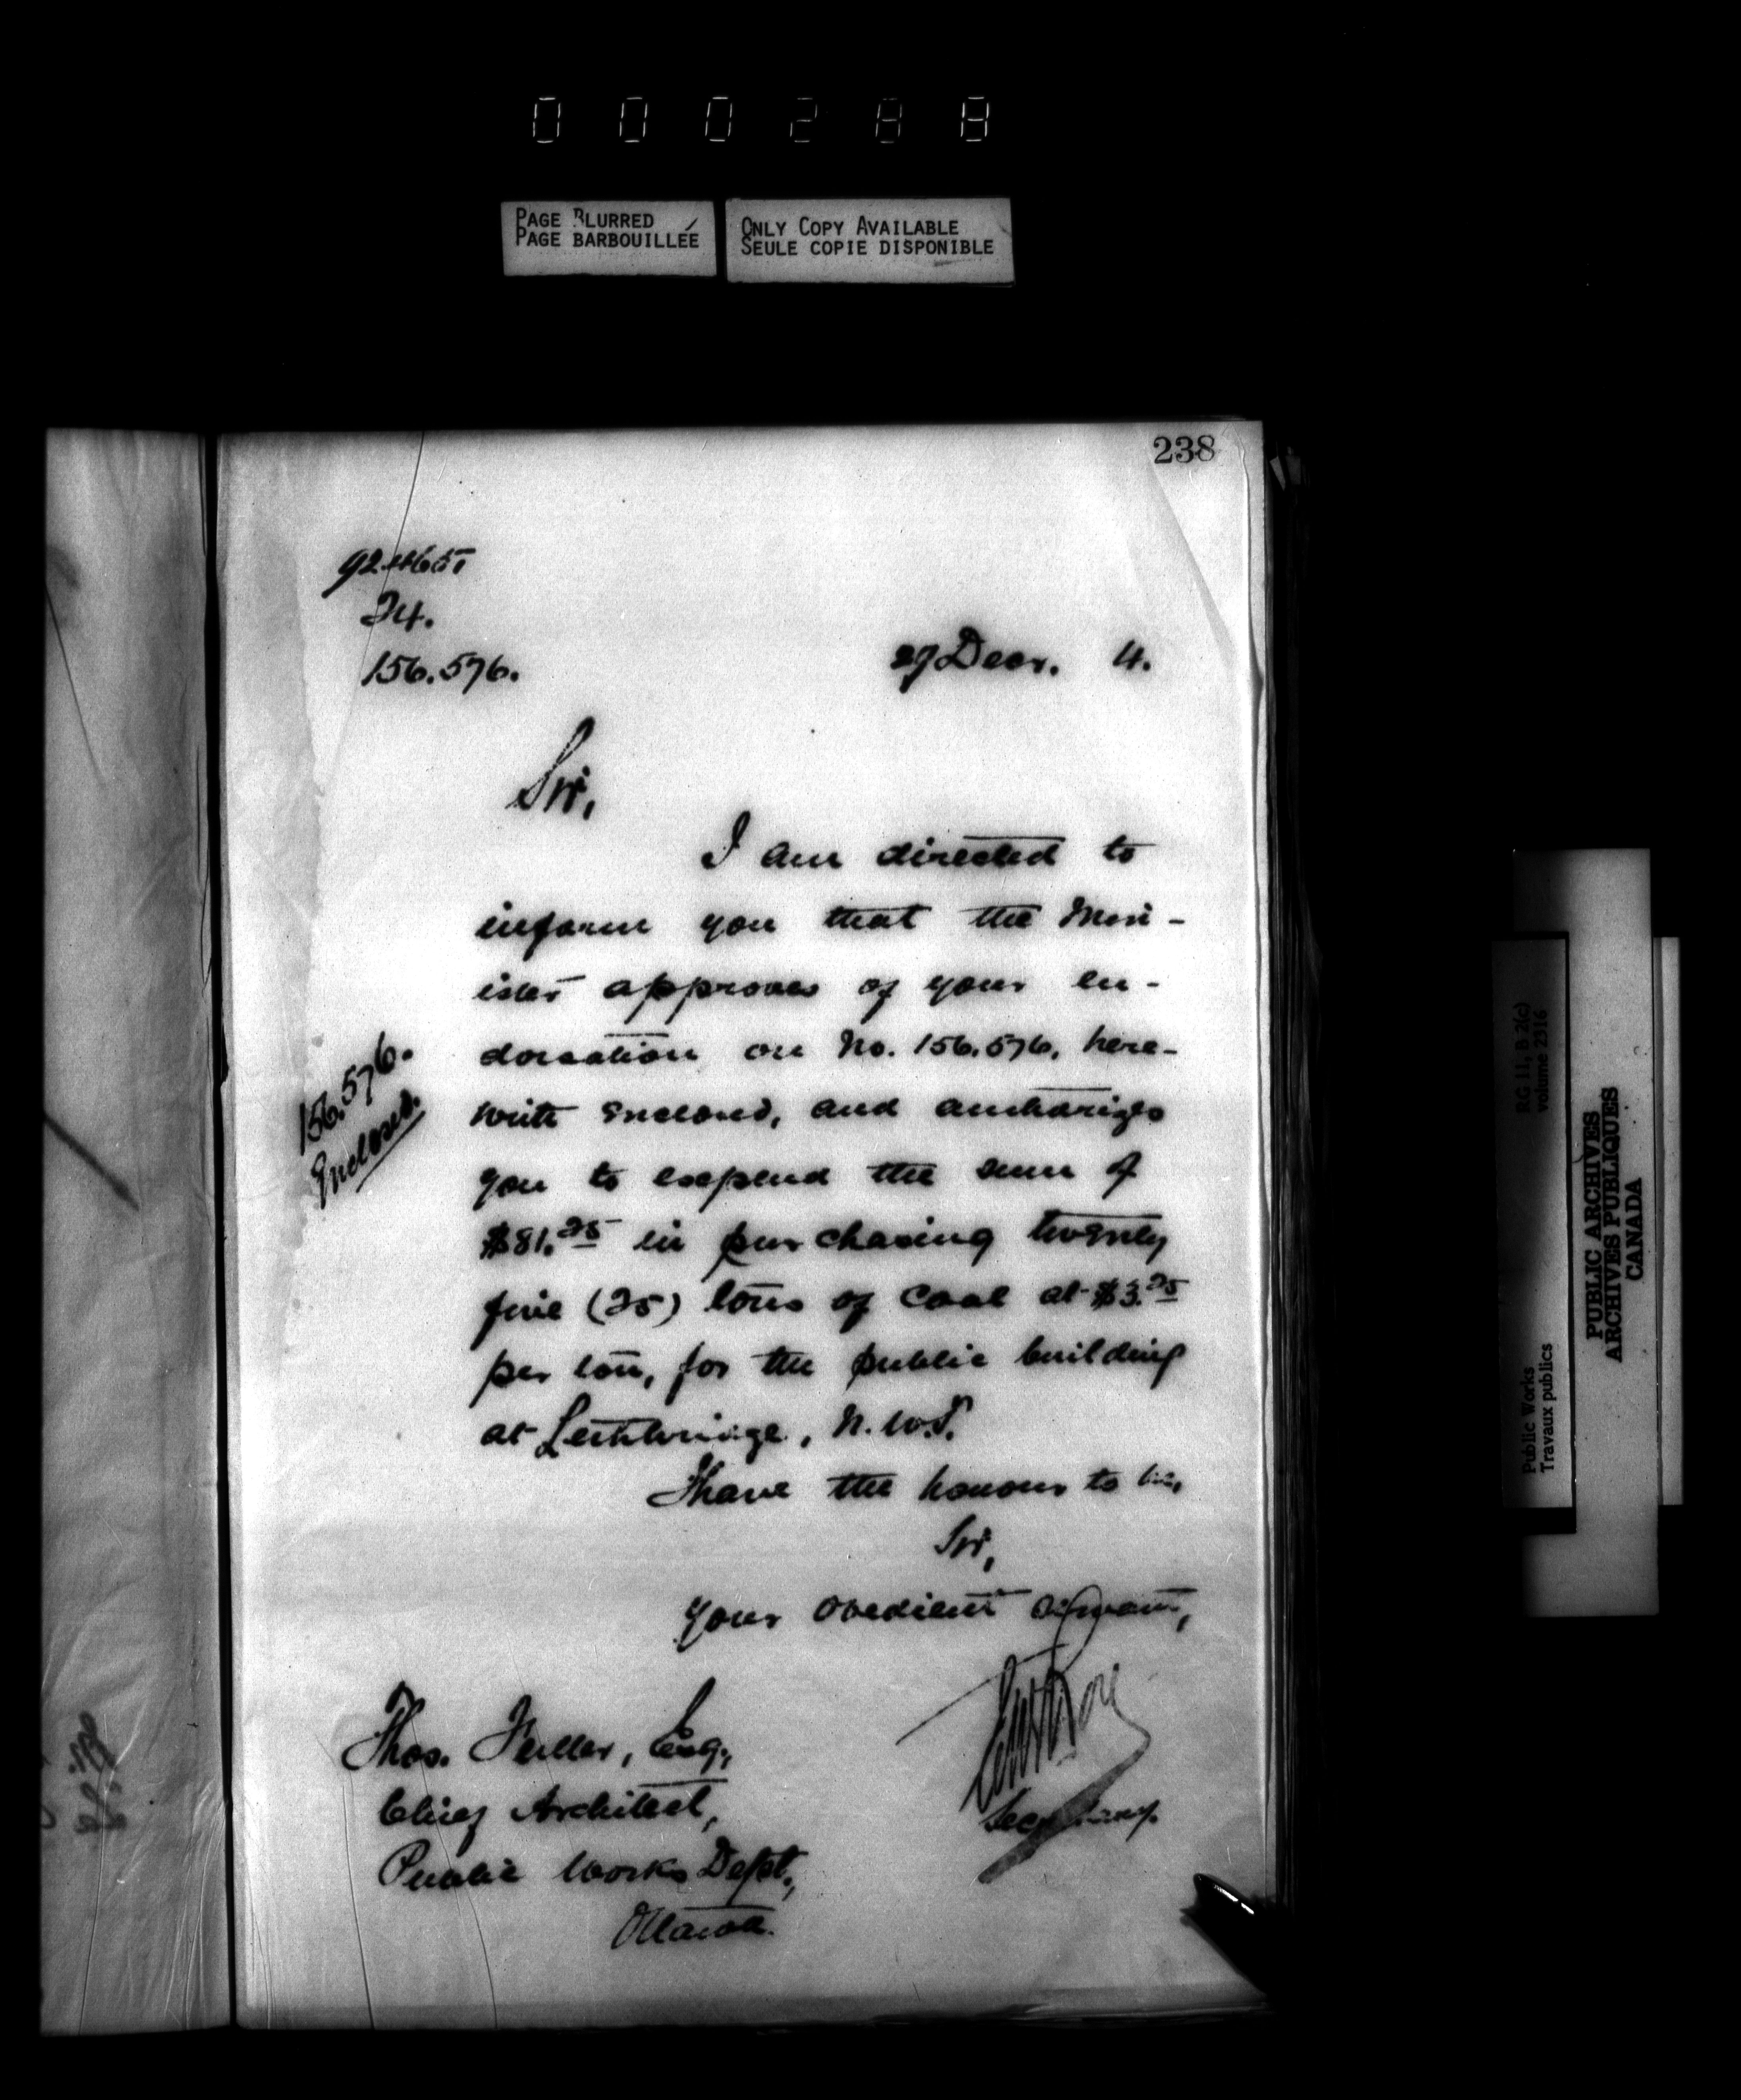 000288
PAGE BLURRED
PAGE BARBOUILLÉE
ONLY COPY AVAILABLE
SEULE COPIE DISPONIBLE
238
24.
156.576.
29 Decr. 4.
Sir,
I am directed to
inform you that the Min-
ister approves of your en-
dorsation on No. 156.576, here-
with enclosed, and authorizes
you to expend the sum of
$81.25 in purchasing twenty
five (25) tons of coal at $3.25
per ton, for the public building
at Lethbridge, N.W.T.
I have the honour to be,
Sir,
Your obedient servant,
Secretary.
156.576.
Enclosed.
Thos. Fuller, Esq.,
Chief Architect,
Public Works Dept.,
Ottawa.
RG 11, B 2(c)
volume 2316
Public Works
Travaux publics
PUBLIC ARCHIVES
ARCHIVES PUBLIQUES
CANADA